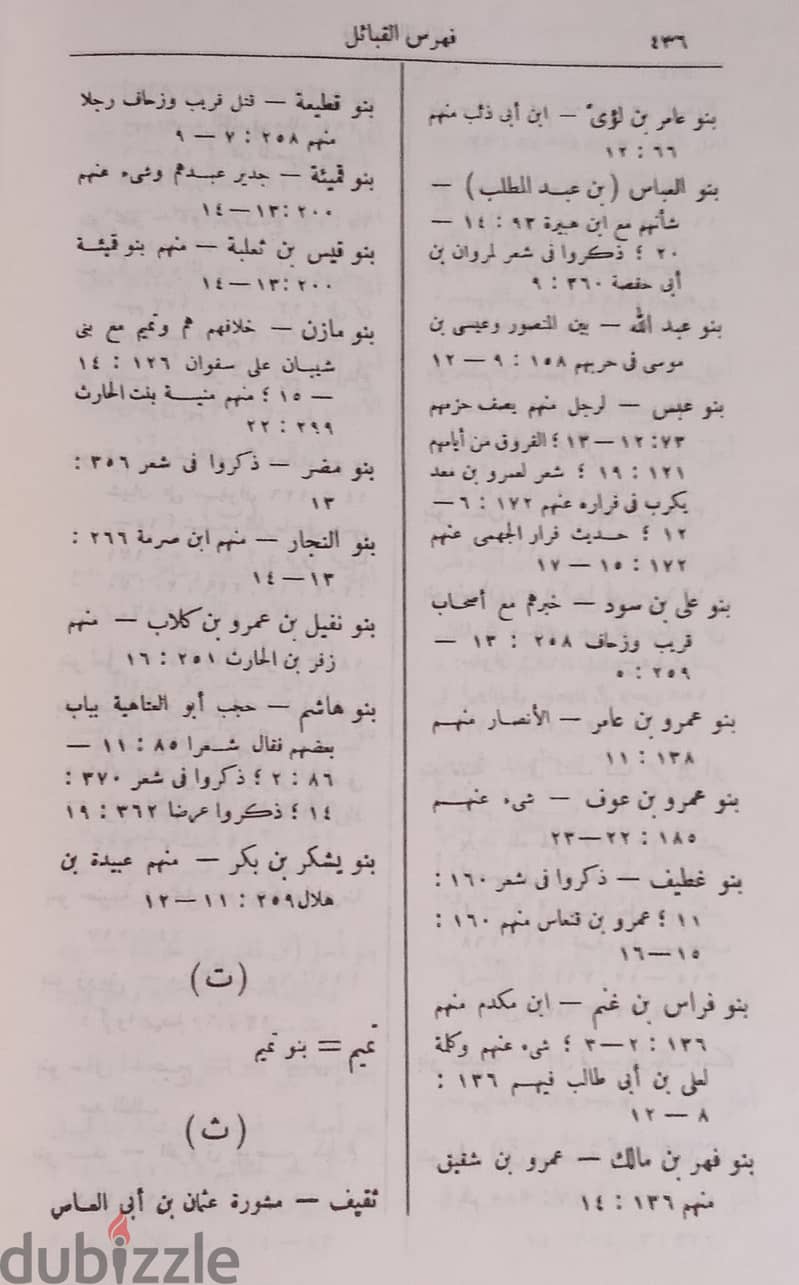 ٤٣٦
فهرس القبائل
بنو عامر بن لؤىّ — ابن أبى ذئب منهم
٦٦ : ١٢
بنو العباس (بن عبد المطلب) —
شأنهم مع ابن هبيرة ٩٣ : ١٤ —
٢٠ ؛ ذكروا فى شعر لمروان بن
أبى حفصة ٣٦٠ : ٩
بنو عبد الله — بين المنصور وعيسى بن
موسى فى حربهم ١٥٨ : ٩ — ١٢
بنو عبس — لرجل منهم يصف حزمهم
٧٣: ١٢ — ١٣ ؛ الفروق من أيامهم
١٢١ : ١٩ ؛ شعر لعمرو بن معد
يكرب فى فراره عنهم ١٧٢ : ٦ —
١٢ ؛ حديث فرار الجهمى عنهم
١٧٢ : ١٥ — ١٧
بنو على بن سود — خبرهم مع أصحاب
قريب وزحاف ٢٥٨ : ١٣ —
٢٥٩ : ٥
بنو عمرو بن عامر — الأنصار منهم
١٣٨ : ١١
بنو عمرو بن عوف — شىء عنهم
١٨٥ : ٢٢ — ٢٣
بنو غطيف — ذكروا فى شعر ١٦٠ :
١١ ؛ عمرو بن قنعاس منهم ١٦٠ :
١٥ — ١٦
بنو فراس بن غنم — ابن مكدم منهم
١٣٦ : ٢ — ٣ ؛ شىء عنهم وكلمة
لعلى بن أبى طالب فيهم ١٣٦ :
٨ — ١٢
بنو فهر بن مالك — عمرو بن شقيق
منهم ١٣٦ : ١٤
بنو قطيعة — قتل قريب وزحاف رجلا
منهم ٢٥٨ : ٧ — ٩
بنو قميئة — جدير عبدهم وشىء عنهم
٢٠٠ : ١٣ — ١٤
بنو قيس بن ثعلبة — منهم بنو قميئة
٢٠٠ : ١٣ — ١٤
بنو مازن — خلافهم هم وتميم مع بنى
شيبان على سفوان ١٢٦ : ١٤
— ١٥ ؛ منهم منية بنت الحارث
٢٩٩ : ٢٢
بنو مضر — ذكروا فى شعر ٣٥٦ :
١٣
بنو النجار — منهم ابن صرمة ٢٦٦ :
١٣ — ١٤
بنو نفيل بن عمرو بن كلاب — منهم
زفر بن الحارث ٢٥١ : ١٦
بنو هاشم — حجب أبو العتاهية بباب
بعضهم فقال شعرا ٨٥ : ١١ —
٨٦ : ٢ ؛ ذكروا فى شعر ٣٧٠ :
١٤ ؛ ذكروا عرضا ٣٦٢ : ١٩
بنو يشكر بن بكر — منهم عبيدة بن
هلال ٢٥٩ : ١١ — ١٢
(ت)
تميم = بنو تميم
(ث)
ثقيف — مشورة عثمان بن أبى العاص
dubizzle